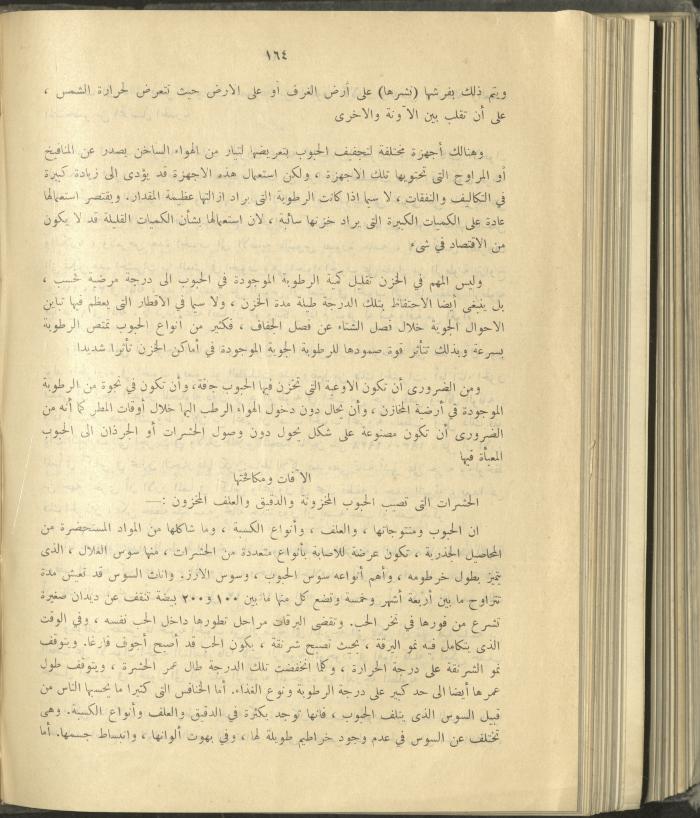 ١٦٤
ويتم ذلك بفرشها (نشرها) على أرض الغرف أو على الارض حيث تتعرض لحرارة الشمس ،
على أن تقلب بين الآونة والاخرى
وهنالك أجهزة مختلفة لتجفيف الحبوب بتعريضها لتيار من الهواء الساخن يصدر عن المنافيخ
أو المراوح التى تحتويها تلك الاجهزة ، ولكن استعمال هذه الاجهزة قد يؤدى الى زيادة كبيرة
في التكاليف والنفقات ، لا سيما اذا كانت الرطوبة التى يراد ازالتها عظيمة المقدار. ويقتصر استعمالها
عادة على الكميات الكبيرة التى يراد خزنها سائبة ، لان استعمالها بشأن الكميات القليلة قد لا يكون
من الاقتصاد في شىء
وليس المهم في الخزن تقليل كمية الرطوبة الموجودة في الحبوب الى درجة مرضية فحسب ،
بل ينبغى أيضا الاحتفاظ بتلك الدرجة طيلة مدة الخزن ، ولا سيما في الاقطار التى يعظم فيها تباين
الاحوال الجوية خلال فصل الشتاء عن فصل الجفاف ، فكثير من أنواع الحبوب تمتص الرطوبة
بسرعة وبذلك تتأثر قوة صمودها للرطوبة الجوية الموجودة في أماكن الخزن تأثرا شديدا
ومن الضرورى أن تكون الاوعية التى تخزن فيها الحبوب جافة، وأن تكون في نجوة من الرطوبة
الموجودة في أرضية المخازن ، وأن يحال دون دخول الهواء الرطب اليها خلال أوقات المطر كما أنه من
الضرورى أن تكون مصنوعة على شكل يحول دون وصول الحشرات أو الجرذان الى الحبوب
المعبأة فيها
الآفات ومكافحتها
الحشرات التى تصيب الحبوب المخزونة والدقيق والعلف المخزون :—
ان الحبوب ومنتوجاتها ، والعلف ، وأنواع الكسبة ، وما شاكلها من المواد المستحضرة من
المحاصيل الجذرية ، تكون عرضة للاصابة بأنواع متعددة من الحشرات ، منها سوس الغلال ، الذى
يتميز بطول خرطومه ، وأهم أنواعه سوس الحبوب ، وسوس الارز. واناث السوس قد تعيش مدة
تتراوح ما بين أربعة أشهر وخمسة وتضع كل منها ما بين ١٠٠ و٢٠٠ بيضة تنقف عن ديدان صغيرة
تشرع من فورها في نخر الحب. وتقضى اليرقات مراحل تطورها داخل الحب نفسه ، وفي الوقت
الذى يتكامل فيه نمو اليرقة ، بحيث تصبح شرنقة ، يكون الحب قد أصبح أجوف فارغا. ويتوقف
نمو الشرنقة على درجة الحرارة ، وكلما انخفضت تلك الدرجة طال عمر الحشرة ، ويتوقف طول
عمرها أيضا الى حد كبير على درجة الرطوبة ونوع الغذاء. أما الخنافس التى كثيرا ما يحسبها الناس من
قبيل السوس الذى يتلف الحبوب ، فانها توجد بكثرة في الدقيق والعلف وأنواع الكسبة. وهى
تختلف عن السوس في عدم وجود خراطيم طويلة لها ، وفي بهوت ألوانها ، وانبساط جسمها. أما